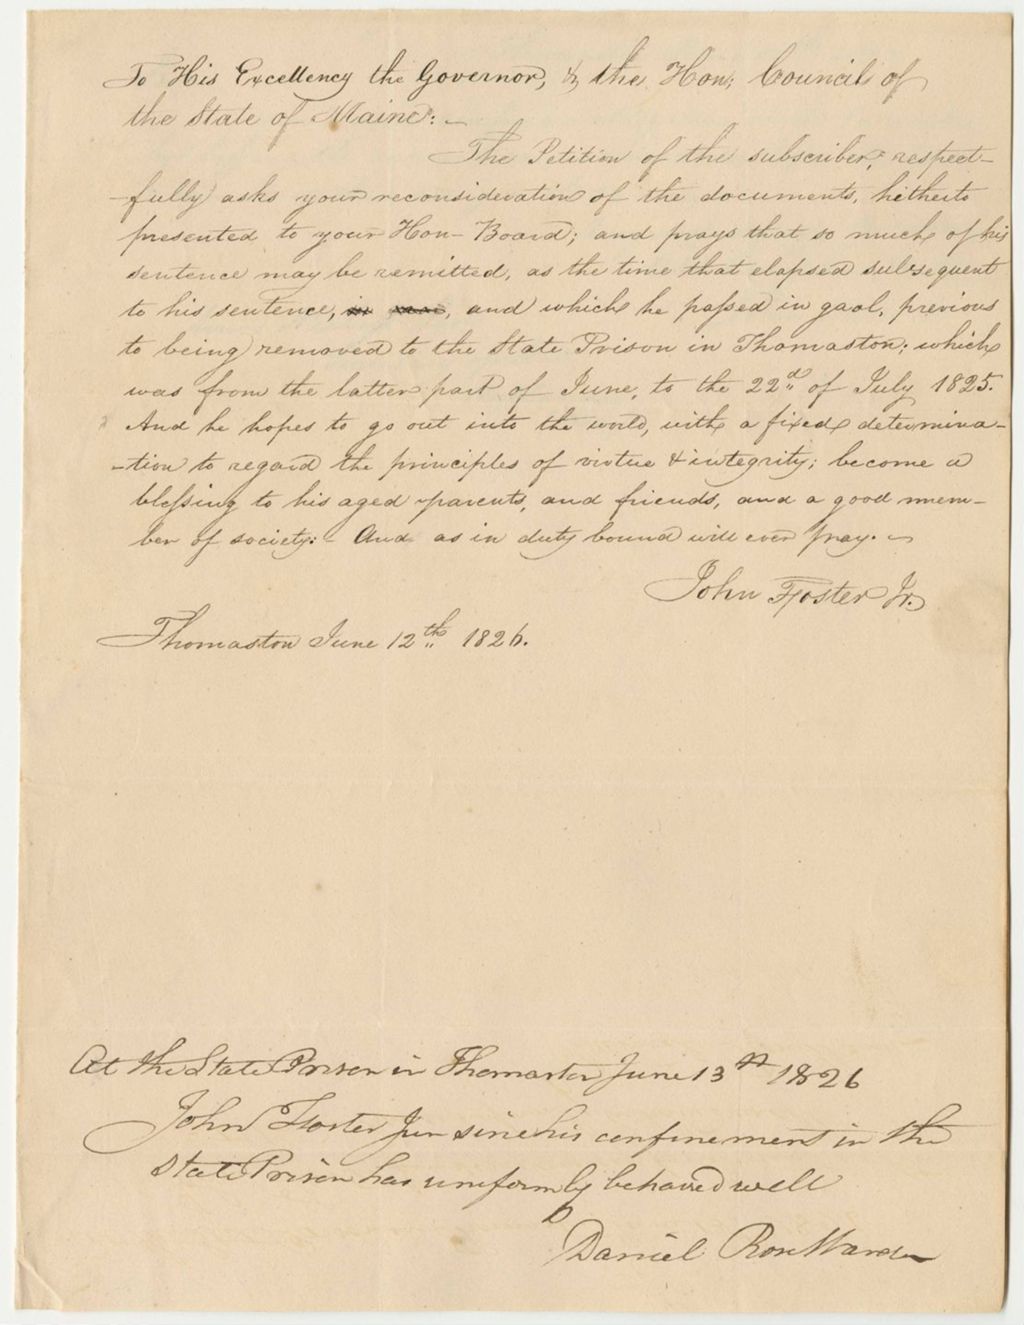 To His Excellency the Governor, & the Hon; Council of
the State of Maine: -
The Petition of the subscriber, respect-
-fully asks your reconsideration of the documents, hitherto
presented to your Hon- Board; and prays that so much of his
sentence may be remitted, as the time that elapsed subsequent
to his sentence, and which he passed in gaol, previous
to being removed to the State Prison in Thomaston; which
was from the latter part of June, to the 22d of July 1825.
And he hopes to go out into the world, with a fixed determina-
-tion to regard the principles of virtue & integrity; become a
blessing to his aged parents, and friends, and a good mem-
ber of society: - And as in duty bound will ever pray. -
John Foster Jr.
Thomaston June 12th 1826.
At the State Prison in Thomaston June 13th 1826
John Foster Jun since his confinement in the
State Prison has uniformly behaved well
Daniel Rose Warden